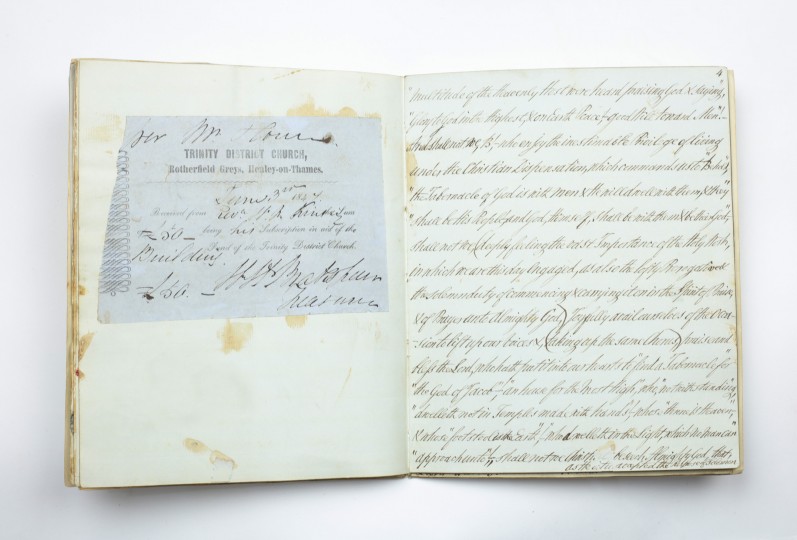 per Mr
TRINITY DISTRICT CHURCH,
Rotherfield Greys, Henley-on-Thames.
June 3rd 184
Received from Revd. W. J. Kinsey
£50 – being his Subscription in aid of the
Building Fund of the Trinity District Church.
£50. –
Treasurer
4
"multitude of the Heavenly Host were heard praising God & saying,
"Glory to God in the Highest, & on Earth Peace & good Will toward Men"!–
And shall not we, – who enjoy the inestimable Privilege of living
under the Christian Dispensation, which commands us to "Behold,
"the Tabernacle of God is with Men & He will dwell with them, & they
"shall be His People, and God Himself shall be with them & be their God,"–
shall not we (deeply feeling the vast Importance of the Holy Work,
in which we are this day engaged, as also the lofty Privilege & 
the solemn duty of commencing & carrying it on in the Spirit of Praise
& of Prayer unto Almighty God,) joyfully avail ourselves of the occa-
sion to lift up our voices &, (taking up the same Theme,) praise and
bless the Lord, who hath put it into our hearts to find a Tabernacle for
"the God of Jacob–," "an house for the Most High," who, "notwithstanding,
"dwelleth not in Temples made with hands", – whose "throne is Heaven,"
& whose "footstool is the Earth", – "who dwelleth in the Light, which no man can
"approach unto"!– shall not we that
as the